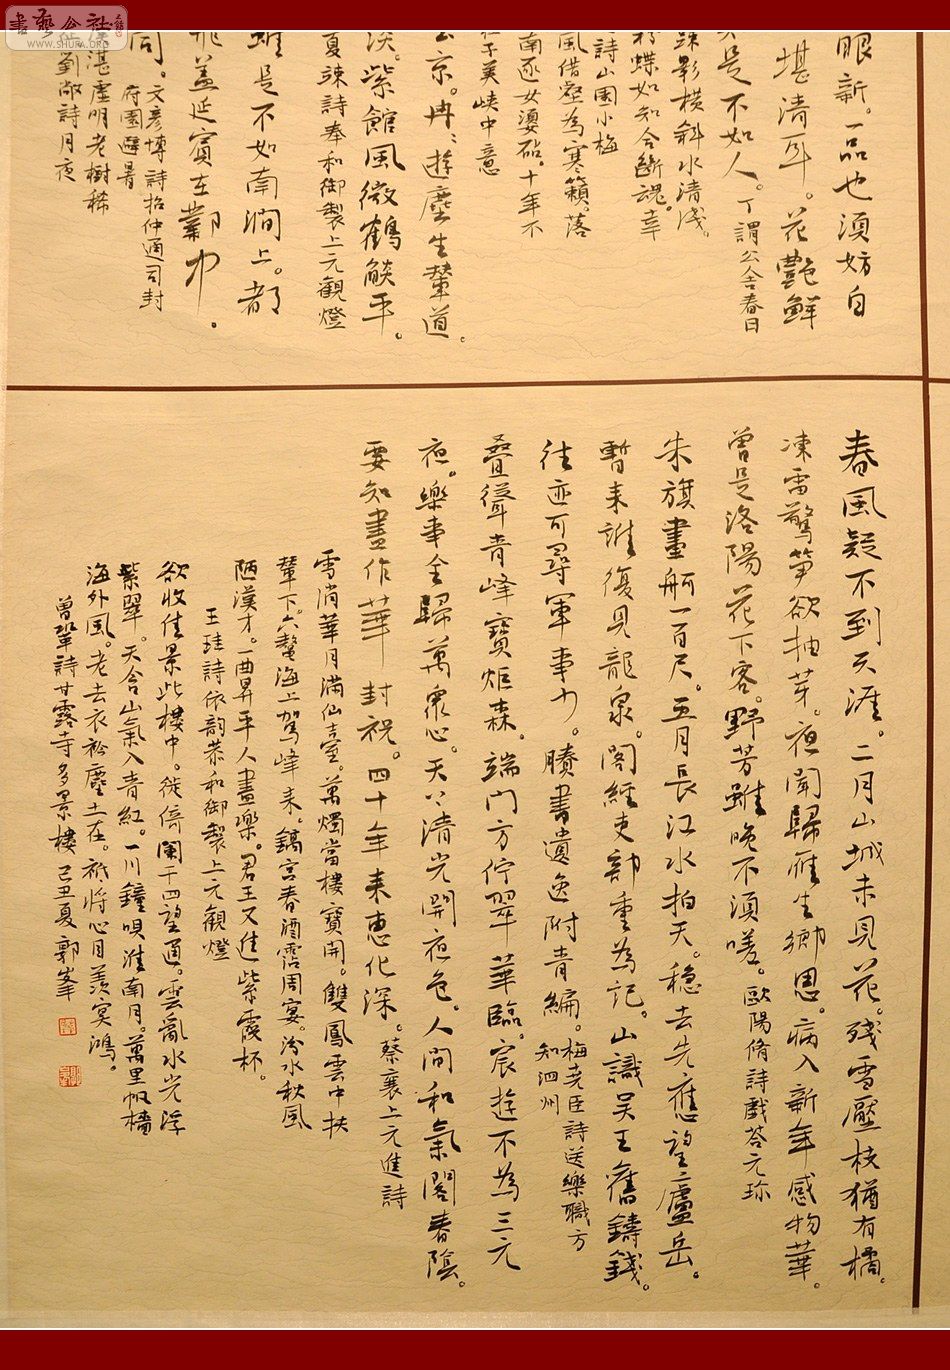 眼新。一品也須妨白
堪清耳。花艷鮮
是不如人。丁謂公舍春日
疎影橫斜水清浅。
粉蝶如知合斷魂。幸
詩山園小梅
風借壑為寒籟。落
南逐女嬃砧。十年不
子美峽中意
京。冉冉遊塵生輦道。
淡。紫館風微鶴燄平。
夏竦詩奉和御製上元觀燈
雖是不如南澗上。都
飛蓋延賓在鄴中。
同。文彦博詩招仲通司封
府園避暑
湛虛明老樹稀
劉敞詩月夜
春風疑不到天涯。二月山城未見花。殘雪壓枝猶有橘。
凍雷驚笋欲抽芽。夜聞歸雁生鄉思。病入新年感物華。
曾是洛陽花下客。野芳雖晚不須嗟。歐陽脩詩戲荅元珍
朱旗畫舸一百尺。五月長江水拍天。穩去先應望廬岳。
暫来誰復見龍泉。閣經吏部重為記。山識吴王舊鑄錢。
往迹可尋軍事力。賸書遺逸附青編。梅尭臣詩送樂職方
知泗州
疊聳青峰寶炬森。端門方佇翠華臨。宸遊不為三元
夜。樂事全歸萬眾心。天上清光開夜色。人間和氣閣春陰。
要知盡作華封祝。四十年来惠化深。蔡襄上元進詩
雪消華月滿仙臺。萬燭當樓寶開。雙鳳雲中扶
輦下。六鰲海上駕峰来。鎬宫春酒霑周宴。汾水秋風
陋漢才。一曲昇平人盡樂。君王又進紫霞杯。
王珪詩依韵恭和御製上元觀燈
欲收佳景此樓中。徙倚闌干四望通。雲亂水光浮
紫翠。天含山氣入青紅。一川鐘唄淮南月。萬里帆檣
海外風。老去衣衿塵土在。衹將心目羨冥鴻。
曾鞏詩甘露寺多景樓 己丑夏郭峯
書藝公社
WWW.SHUFA.ORG